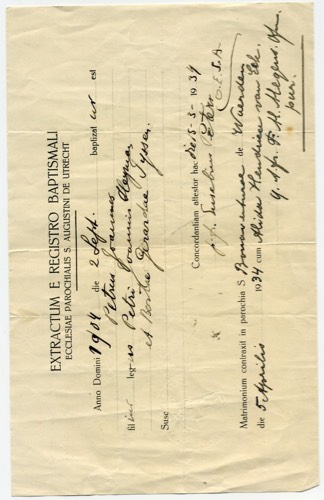 EXTRACTUM E REGISTRO BAPTISMALI
ECCLESIAE PAROCHIALIS S. AUGUSTINI DE UTRECHT
Anno Domini 1904 die 2 Sept. baptizatus est
Petrus Joannes
filius leg-us Petri Joannis
et Gerardae
Susc
Concordantiam attestor hac die 15-5-1934
fr. Eusebius Peters
O.E.S.A.
Matrimonium contraxit in parochia S Bonaventurae de Woerden
die 5 Aprilis 1934 cum Alida Hendrica van Eck.
q. s. fr. F. M. Megens. Ofm.
par.